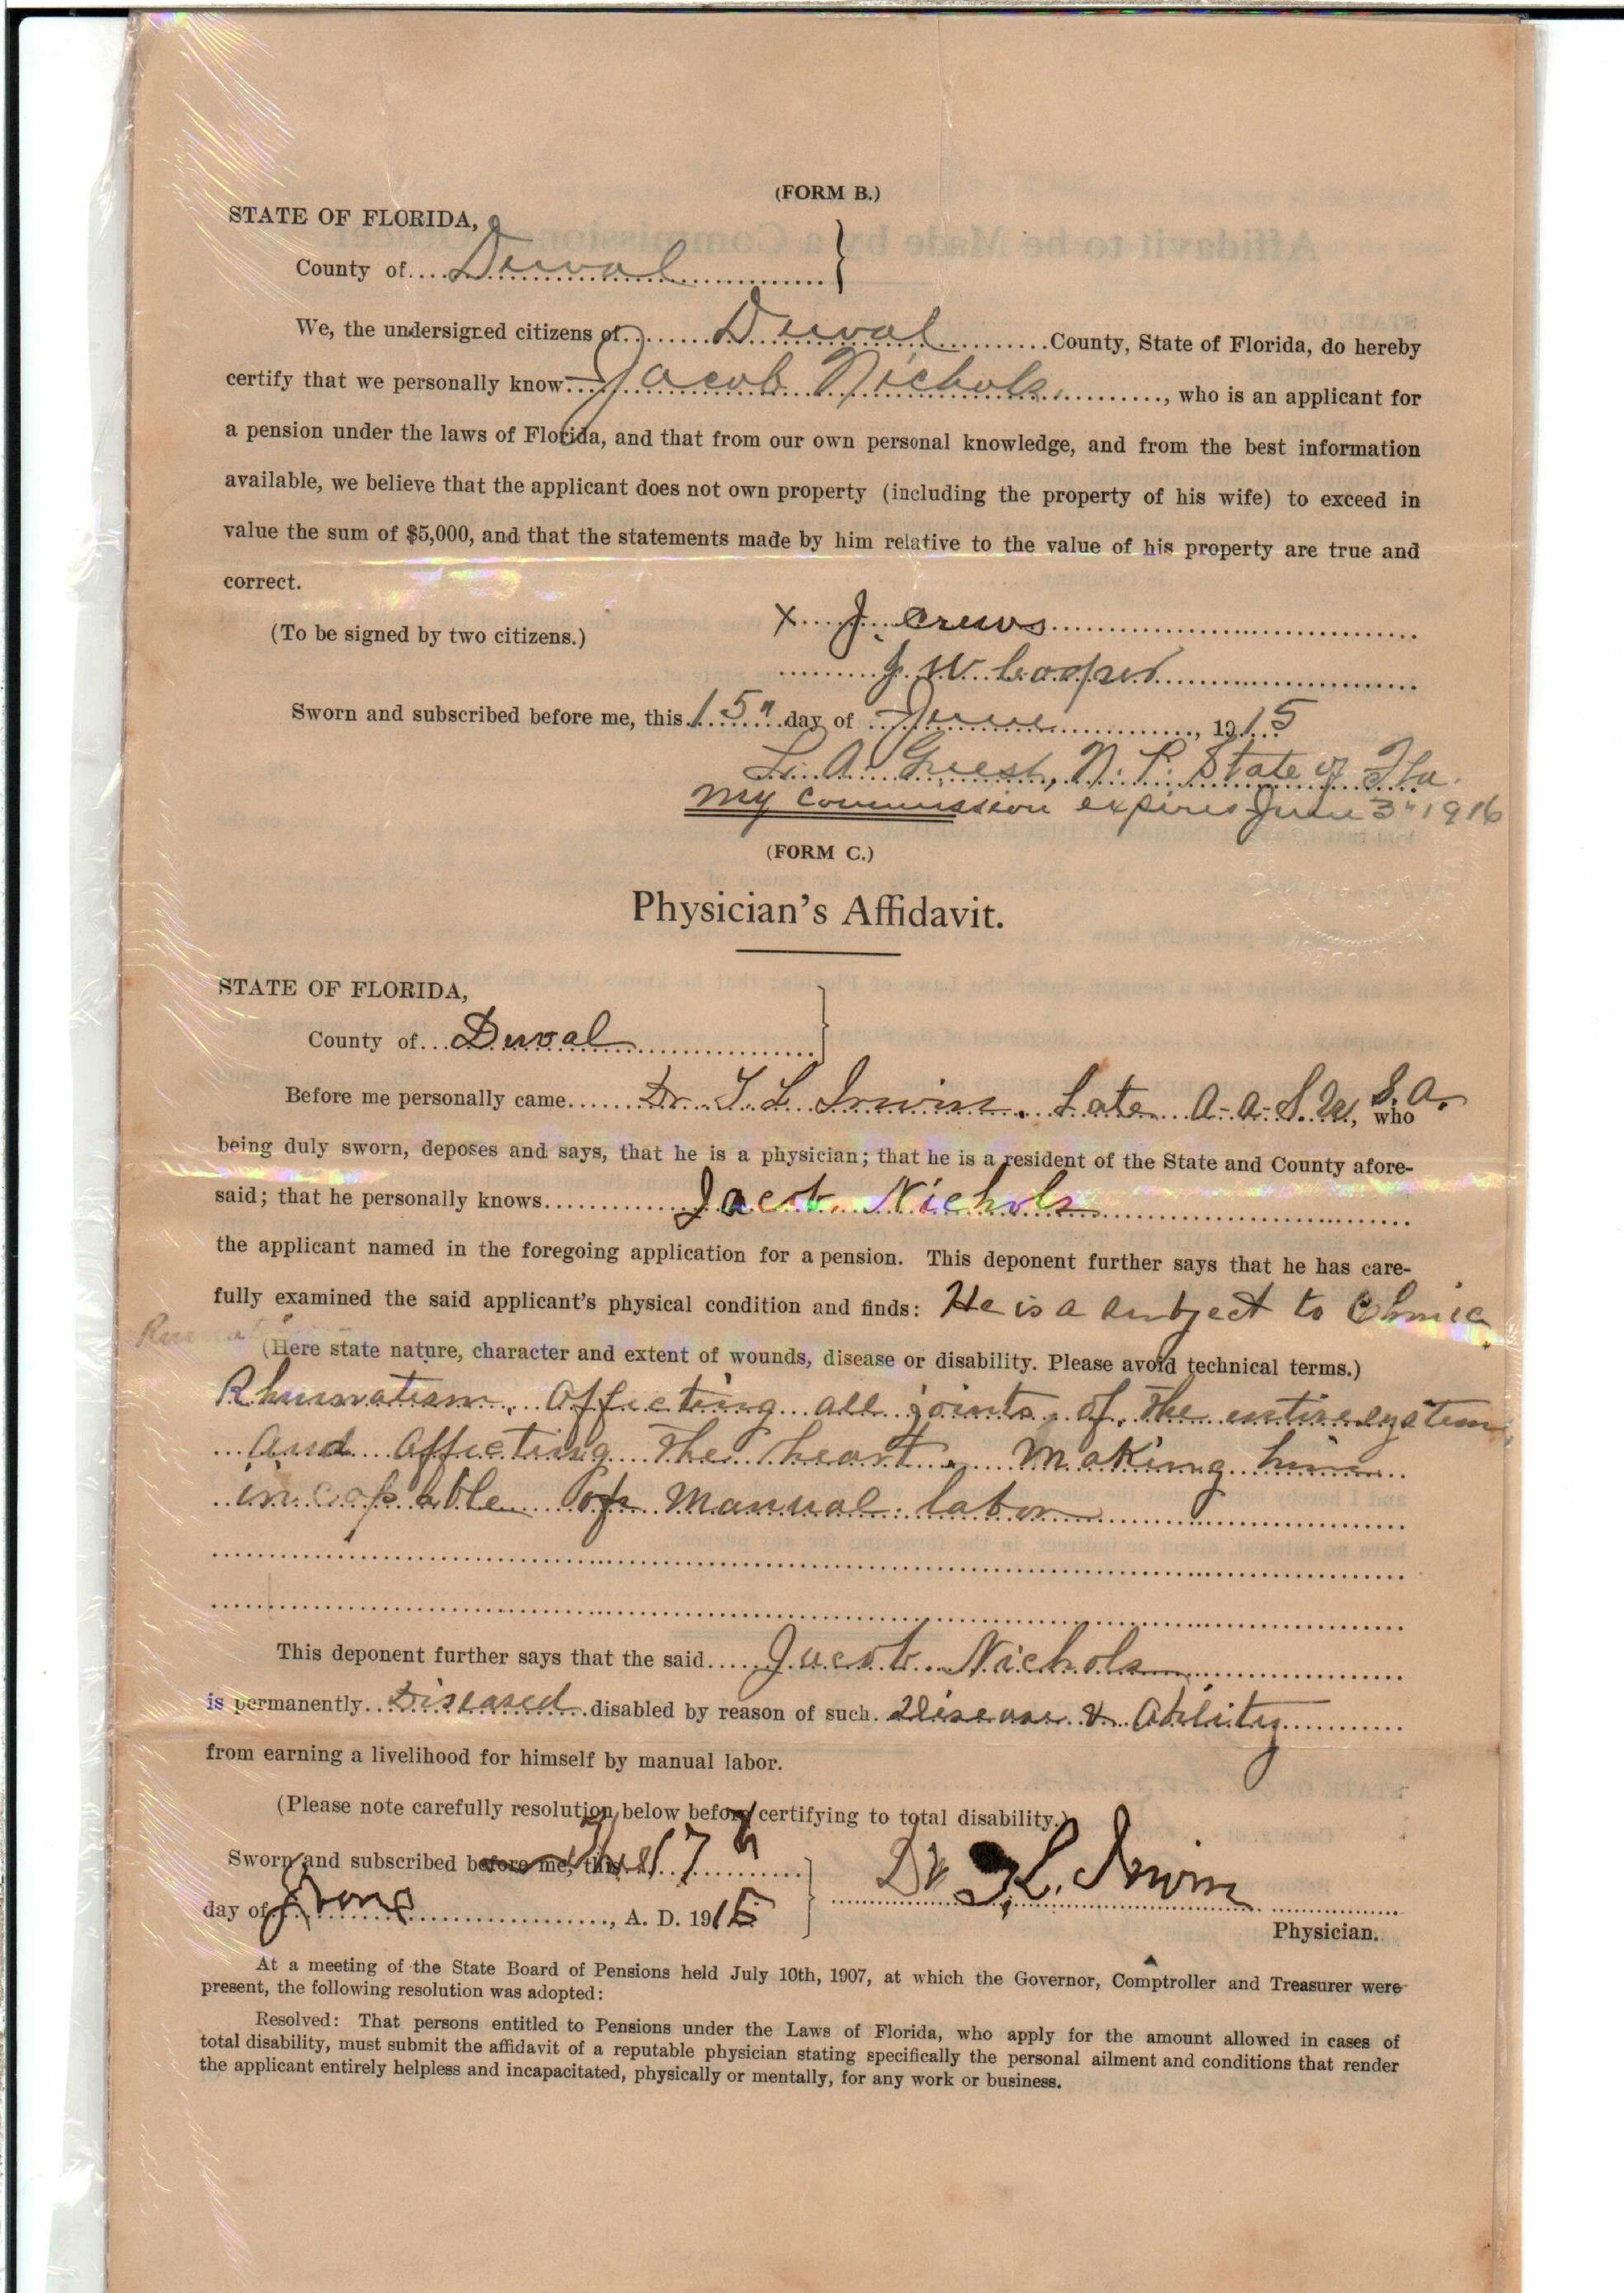 (FORM B.)
STATE OF FLORIDA,
County of....Duval
We, the undersigned citizens of Duval County, State of Florida, do hereby
certify that we personally know Jacob Nichols, who is an applicant for
a pension under the laws of Florida, and that from our own personal knowledge, and from the best information
available, we believe that the applicant does not own property (including the property of his wife) to exceed in
value the sum of $5,000, and that the statements made by him relative to the value of his property are true and
correct.
(To be signed by two citizens.)
X J. Crews
J W Cooper
Sworn and subscribed before me, this 15" day of June, 1915
L. A. Guest, N. P. State of Fla.
My commission expires June 3" 1916
(FORM C.)
Physician's Affidavit.
STATE OF FLORIDA,
County of Duval
Before me personally came Dr. T. L. Irwin. Late A-A-S.U.S.A., who
being duly sworn, deposes and says, that he is a physician; that he is a resident of the State and County afore-
said; that he personally knows Jacob Nichols
the applicant named in the foregoing application for a pension. This deponent further says that he has care-
fully examined the said applicant's physical condition and finds: He is a subject to Chronic
(Here state nature, character and extent of wounds, disease or disability. Please avoid technical terms.)
Rhumatism, affecting all joints of the entire system
and affecting the heart. Making him
incapable of Manual labor
This deponent further says that the said Jacob Nichols
is permanently Diseased disabled by reason of such Disease & Ability
from earning a livelihood for himself by manual labor.
(Please note carefully resolution below before certifying to total disability.)
Sworn and subscribed before me, this 17
day of June, A. D. 1915
Dr T. L. Irwin
Physician.
At a meeting of the State Board of Pensions held July 10th, 1907, at which the Governor, Comptroller and Treasurer were
present, the following resolution was adopted:
Resolved: That persons entitled to Pensions under the Laws of Florida, who apply for the amount allowed in cases of
total disability, must submit the affidavit of a reputable physician stating specifically the personal ailment and conditions that render
the applicant entirely helpless and incapacitated, physically or mentally, for any work or business.